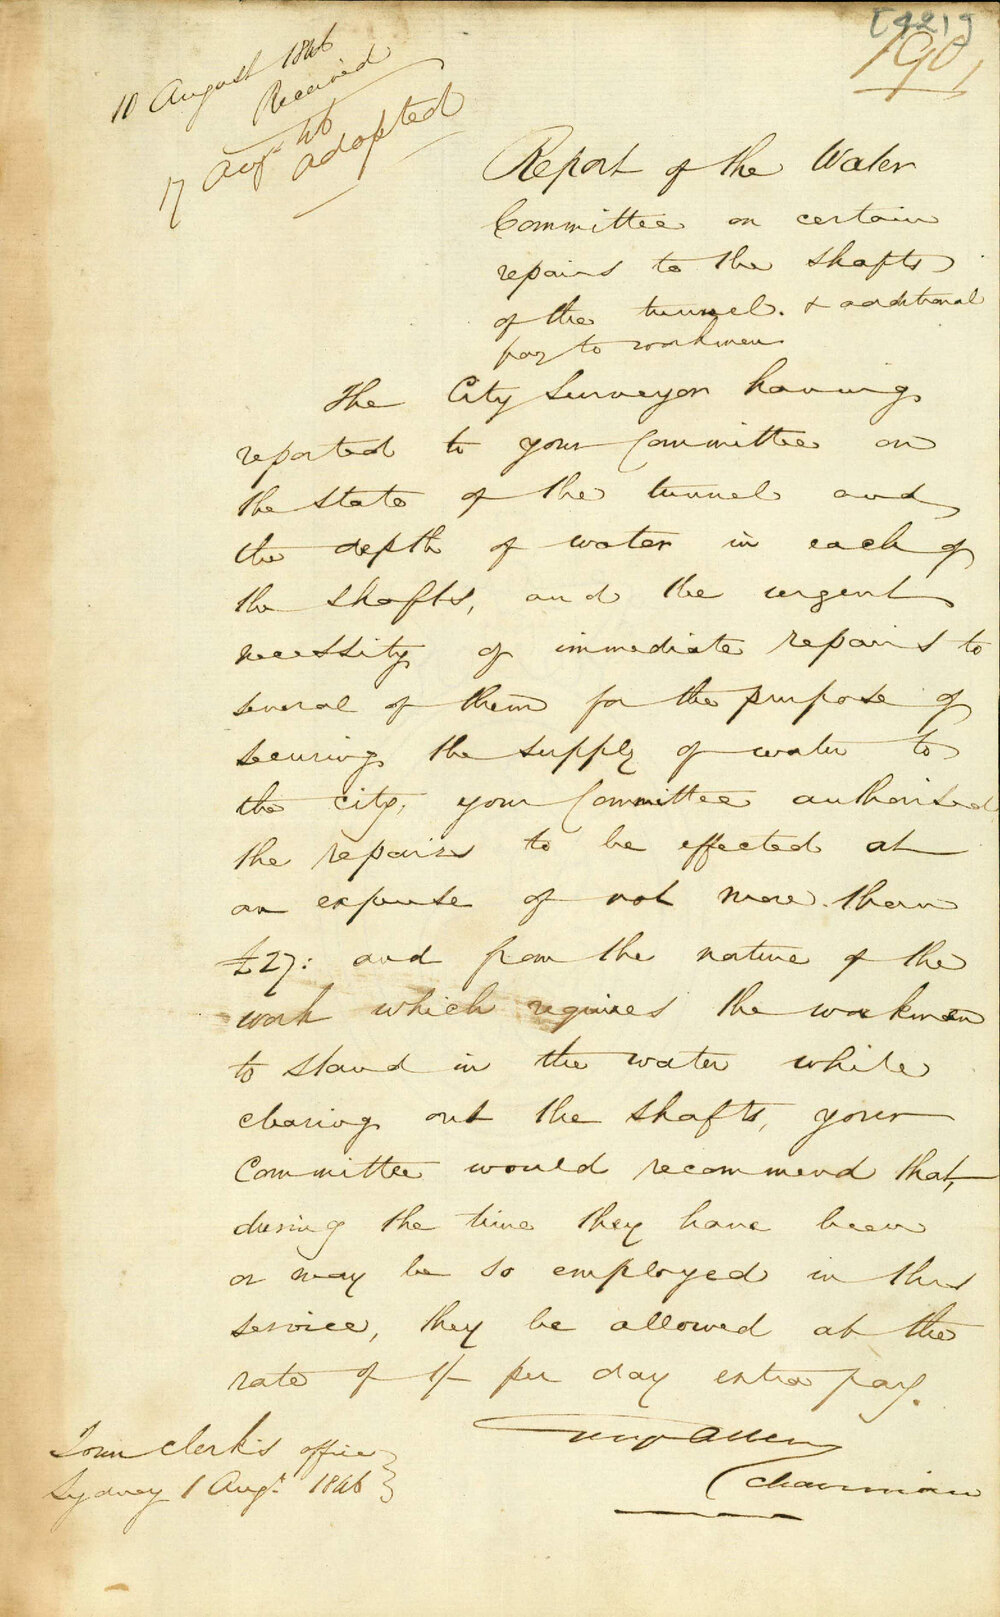 [421]
190,
10 August 1846
Received
17 Augt 46
adopted
Report of the Water
Committee on certain
repairs to the shafts
of the tunnel. & additional
pay to workmen
The City Surveyor having
reported to your Committee on
the state of the tunnel and
the depth of water in each of
the shafts, and the urgent
necessity of immediate repairs to
several of them for the purpose of
securing the supply of water to
the city, your Committee authorised
the repairs to be effected at
an expense of not more than
£27: and from the nature of the
work which requires the workmen
to stand in the water while
clearing out the shafts, your
Committee would recommend that,
during the time they have been
or may be so employed in this
service, they be allowed at the
rate of 1/- per day extra pay.
Allen
Chairman
Town Clerk's office
Sydney 1 Augt. 1846